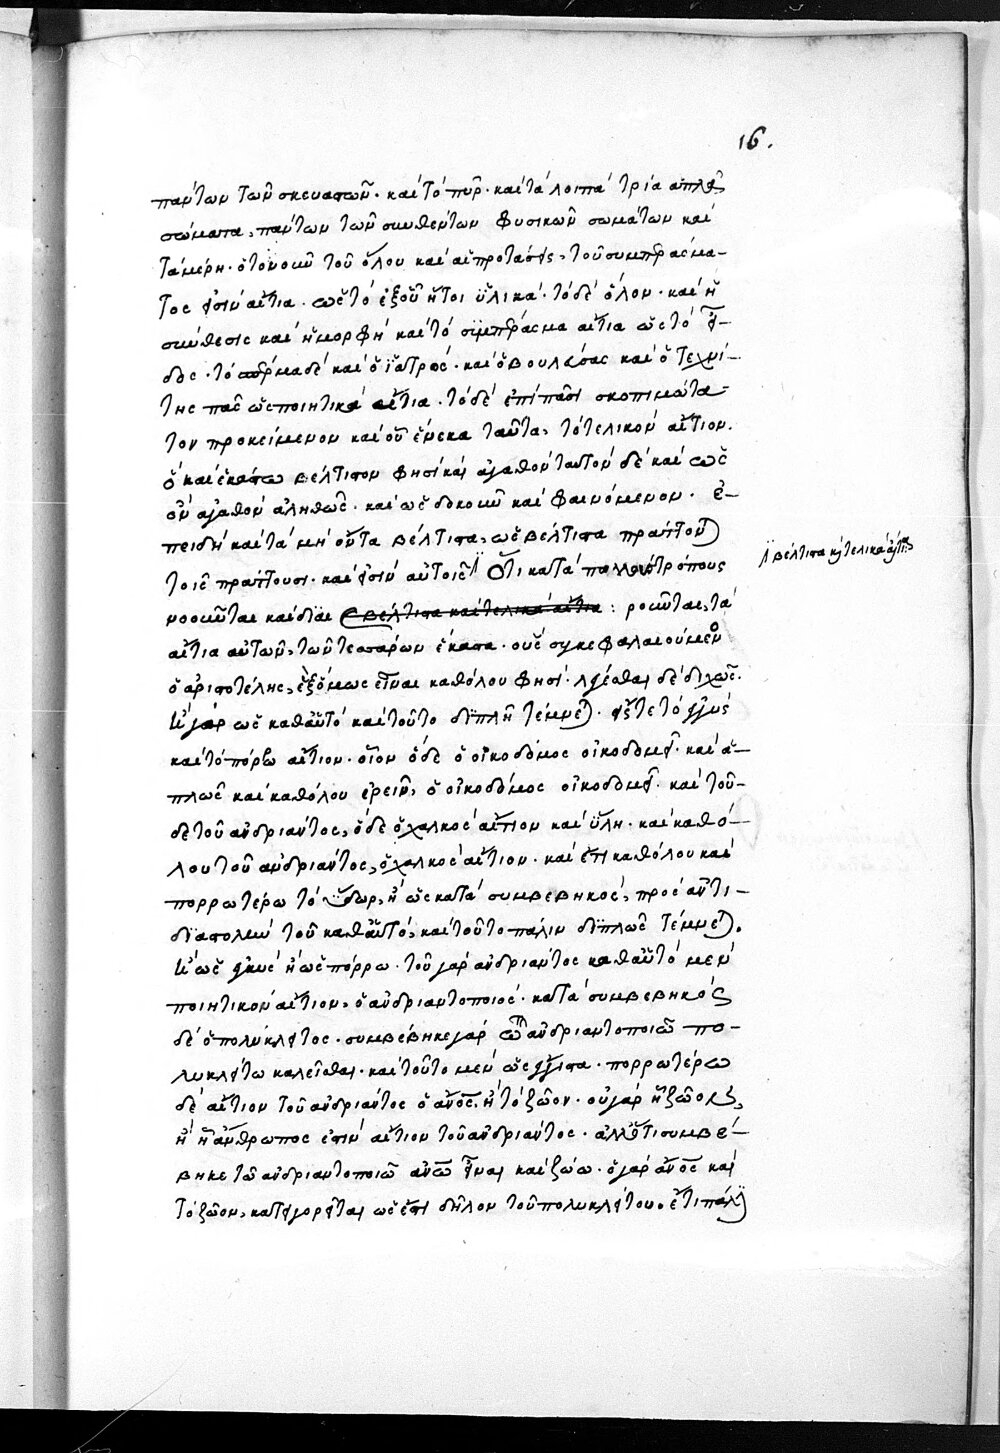 16.
πάντων τῶν σκευαστῶν· καὶ τὸ πῦρ· καὶ τὰ λοιπὰ τρία ἁπλᾶ
σώματα, πάντων τῶν συνθέντων φυσικῶν σωμάτων καὶ
τὰ μέρη· τοῦ ὅλου καὶ αἱ προτάσεις, τοῦ συμπεράσμα-
τός εἰσιν αἴτια· ὡς τὸ ἐξ οὗ ἤτοι ὑλικά· τὸ δὲ ὅλον· καὶ ἡ
σύνθεσις καὶ ἡ μορφὴ καὶ τὸ συμπέρασμα αἴτια ὡς τὸ εἶ-
δος· τὸ σπέρμα δὲ καὶ ὁ ἰατρός· καὶ ὁ βουλεύσας καὶ ὁ τεχνί-
της πᾶς ὡς ποιητικὰ αἴτια· τὸ δὲ ἐπὶ πᾶσι σκοπιμώτα-
τον προκείμενον καὶ οὗ ἕνεκα ταῦτα, τὸ τελικὸν αἴτιον.
ὃ καὶ ἑκάστω βέλτιστον φησὶ καὶ ἀγαθόν ταυτὸν δὲ καὶ ὡς
ὂν ἀγαθὸν ἀληθῶς· καὶ ὡς δοκοῦν καὶ φαινόμενον· ἐ-
πειδὴ καὶ τὰ μὴ ὄντα βέλτιστα, ὡς βέλτιστα πράττον)
τοῖς πράττουσι· καὶ εἰσὶν αὐτοῖς Ὅτι κατὰ πολλοὺς τρόπους
βέλτιστα καὶ τελικὰ αἴτια
νοοῦνται καὶ βέλτιστα καὶ τελικὰ αἴτια : τὰ
αἴτια αὐτῶν, τῶν τεσσάρων ἕκαστα· οὓς συγκεφαλαιούμενος
ὁ ἀριστοτέλης, ἓξ ὅμως εἶναι καθόλου φησί· λέγεσθαι δὲ διχῶς·
ἢ γὰρ ὡς καθαυτὸ καὶ τοῦτο διπλῇ τέμνετ)· εἴς τε τὸ ἐγγὺς
καὶ τὸ πόρρω αἴτιον· οἷον ὅδε ὁ οἰκοδόμος οἰκοδομεῖ· καὶ ἁ-
πλῶς καὶ καθόλου ἐρεῖν, ὁ οἰκοδόμος οἰκοδομεῖ· καὶ τοῦ-
δε τοῦ ἀνδριάντος, ὅδε ὁ χαλκὸς αἴτιον καὶ ὕλη· καὶ καθό-
λου τοῦ ἀνδριάντος, ὁ χαλκὸς αἴτιον· καὶ ἔτι καθόλου καὶ
πορρωτέρω τὸ ὕδωρ, ἢ ὡς κατὰ συμβεβηκός, πρὸς ἀντι-
διαστολὴν τοῦ καθαυτό, καὶ τοῦτο πάλιν διπλῶς τέμνετ).
ἢ ὡς ἐγγὺς ἢ ὡς πόρρω· τοῦ γὰρ ἀνδριάντος καθαυτὸ μὲν
ποιητικὸν αἴτιον, ὁ ἀνδριαντοποιός· κατὰ συμβεβηκὸς
δὲ ὁ πολύκλειτος· συμβέβηκε γὰρ τῶ ἀνδριαντοποιῶ πο-
λυκλείτω καλεῖσθαι· καὶ τοῦτο μὲν ὡς ἔγγιστα· πορρωτέρω
δὲ αἴτιον τοῦ ἀνδριάντος ὁ ἄνος ἢ τὸ ζῶον· οὐ γὰρ ᾗ ζῶον,
ἢ ᾗ ἄνθρωπος ἐστὶν αἴτιον τοῦ ἀνδριάντος· ἀλλ' ὅτι συμβέ-
βηκε τῶ ἀνδριαντοποιῶ ἀνω εἶναι καὶ ζώω· ὁ γὰρ ἄνος καὶ
τὸ ζῶον, κατηγορεῖται ὡς ἐπὶ δῆλον τοῦ πολυκλείτου. ἔτι πάλιν